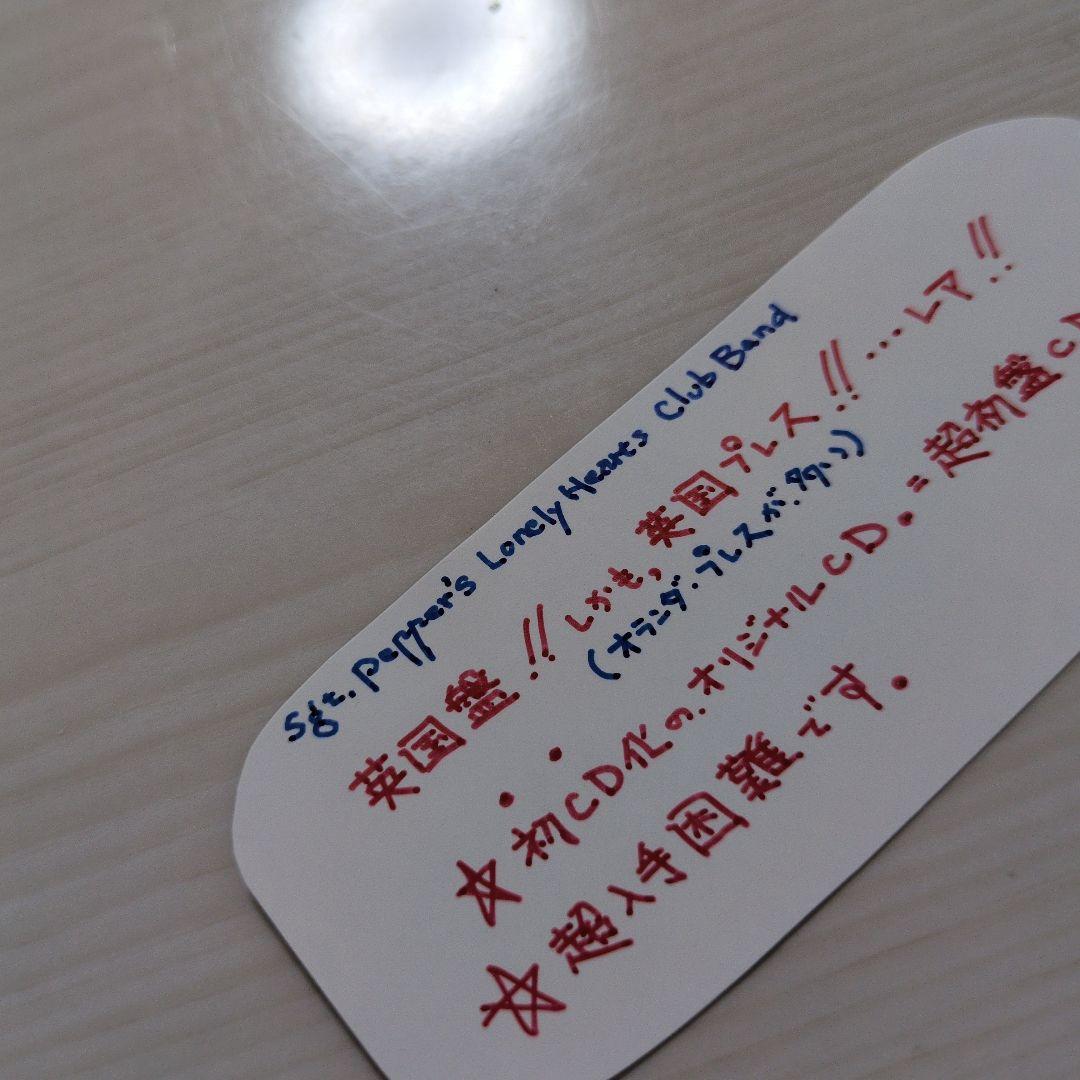 Sgt. Pepper's Lonely Hearts Club Band
英国盤!! しかも、英国プレス!! ...レア!!
(オランダ.プレスが.多い))
☆初CD化の.オリジナルCD.=超初盤CD
☆超入手困難です.